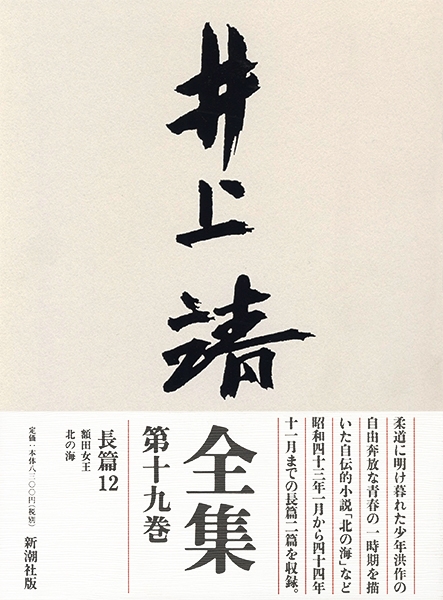 井上靖
柔道に明け暮れた少年洪作の
自由奔放な青春の一時期を描
いた自伝的小説「北の海」など
昭和四十三年一月から四十四年
十一月までの長篇二篇を収録。
全集
第十九巻
長篇12
額田女王
北の海
定価:本体八、二〇〇円(税別)
新潮社版